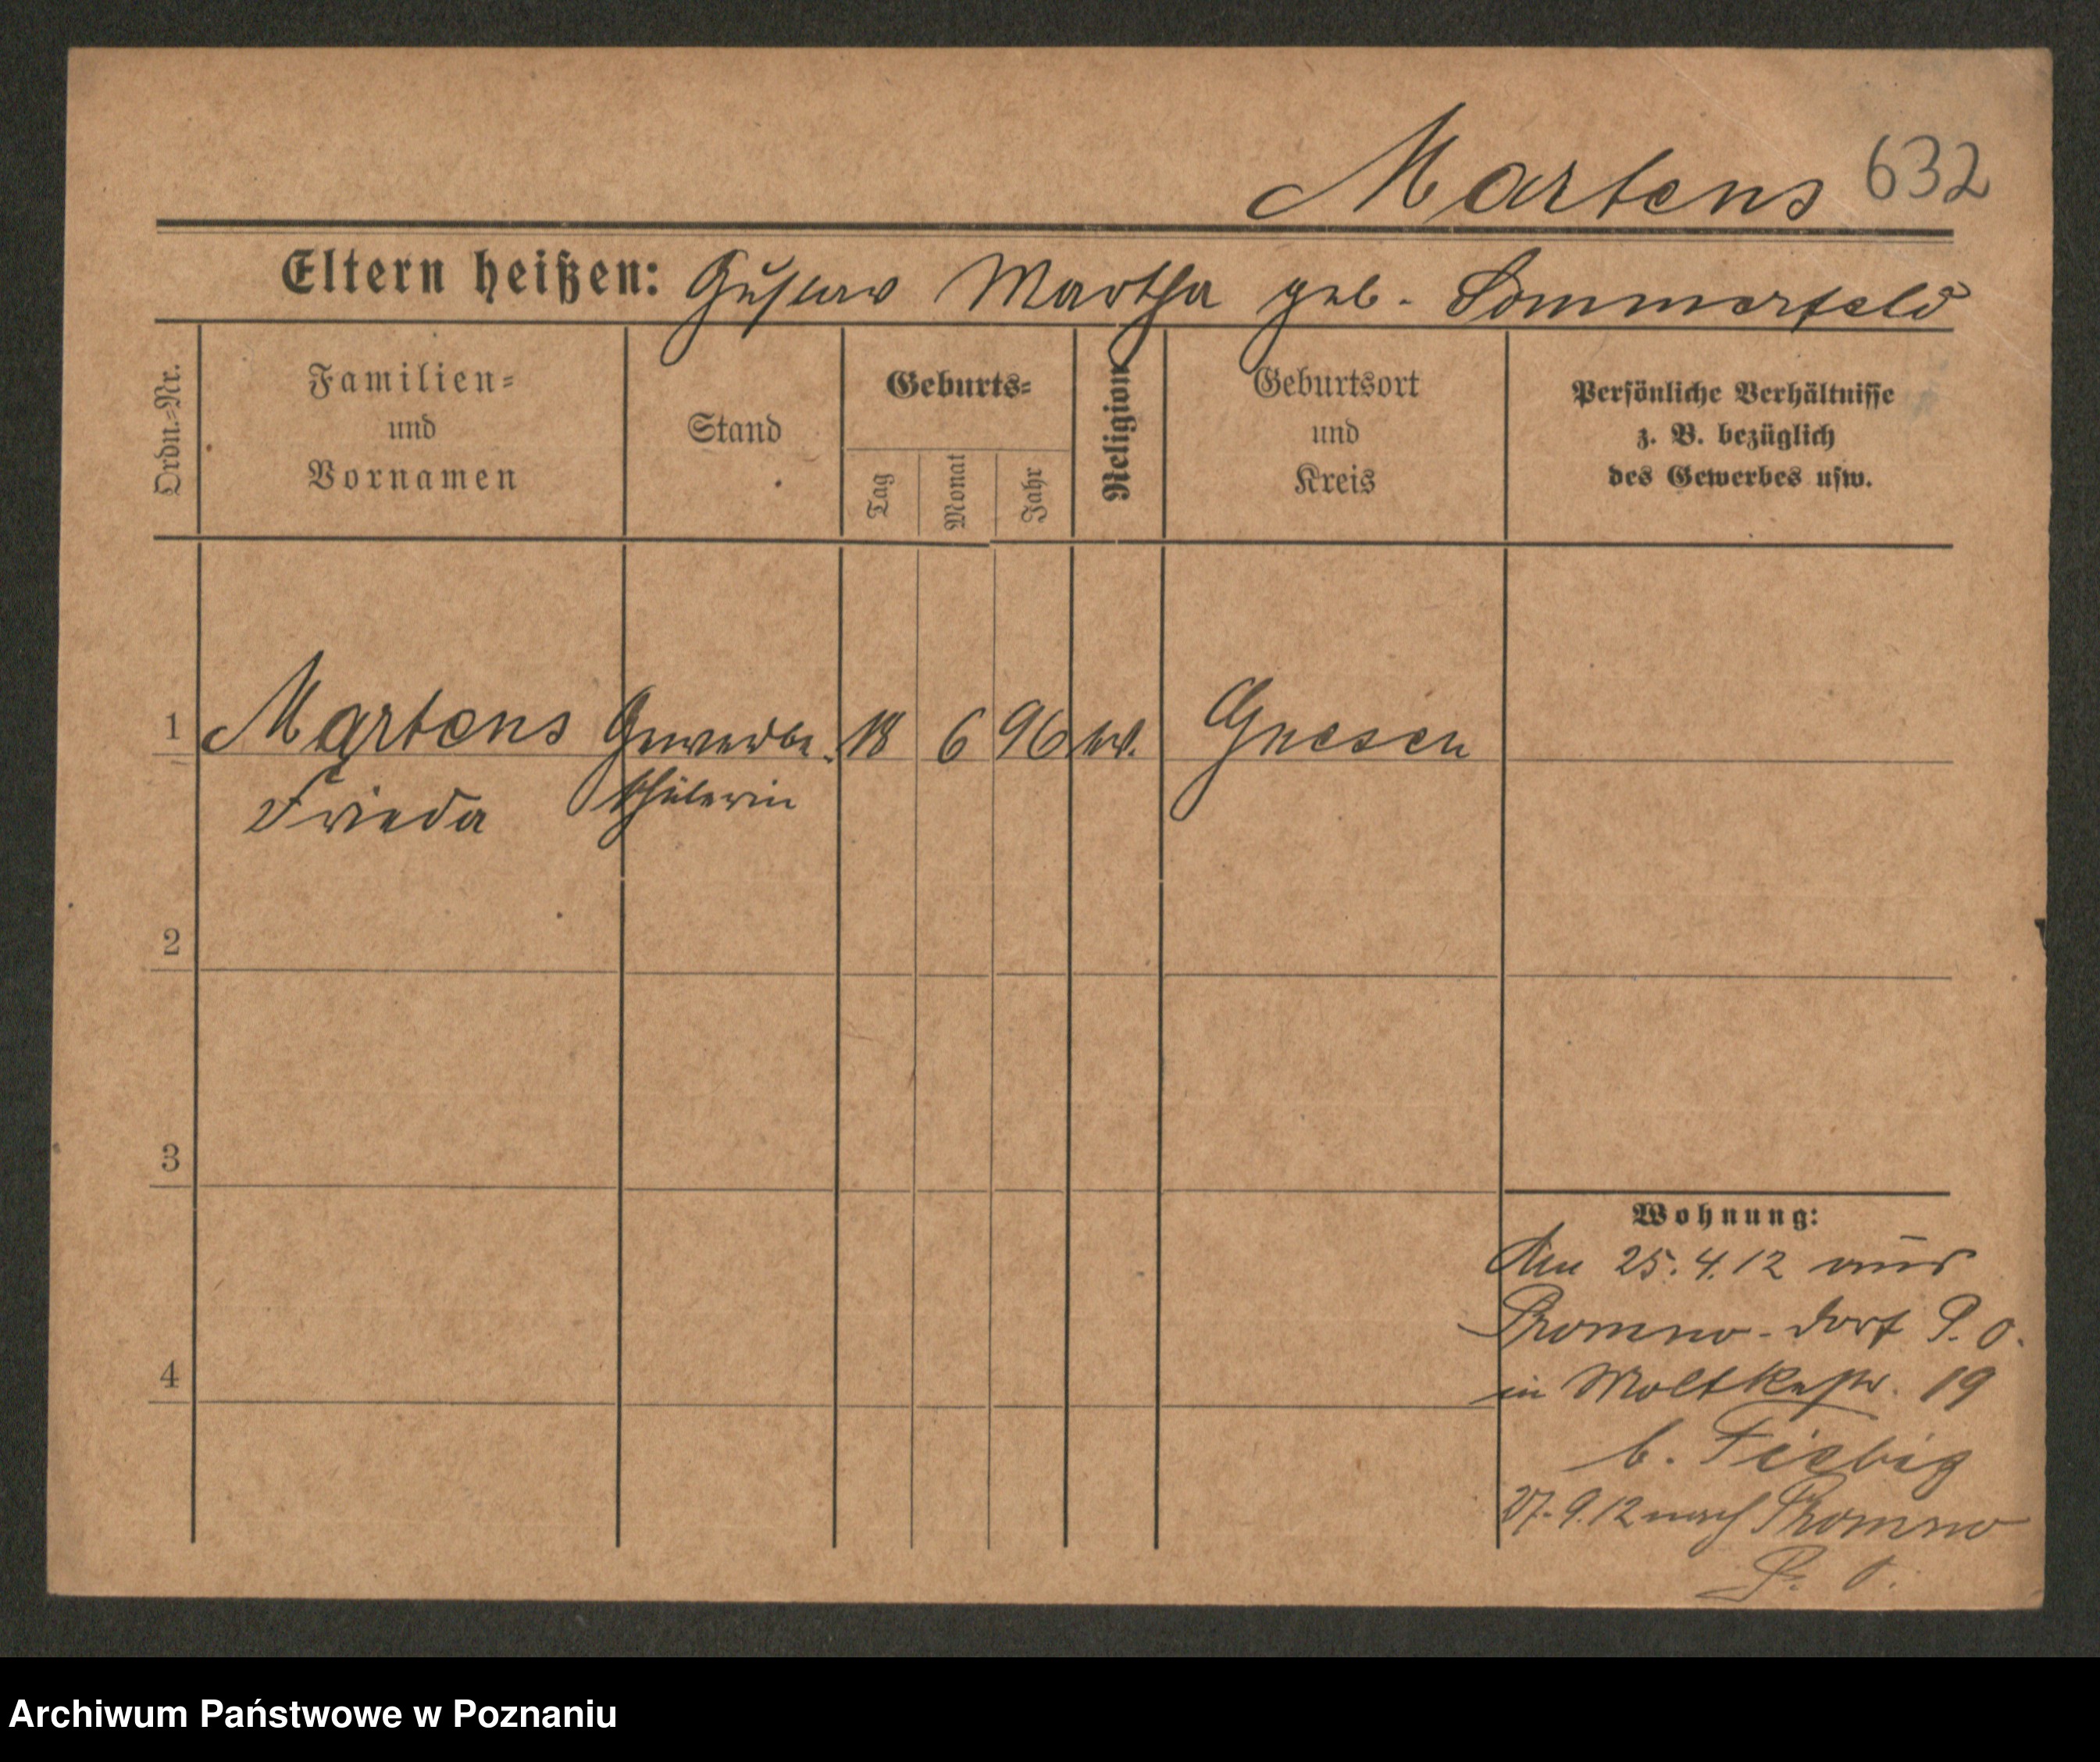 Martens 632
Eltern heißen: Gustav Martha geb. Sommerfeld
Ordn.-Nr.
Familien-
und
Vornamen
Stand
Geburts-
Tag
Monat
Jahr
Religion
Geburtsort
und
Kreis
Persönliche Verhältnisse
z. B. bezüglich
des Gewerbes usw.
1 Martens Gewerbe- 18 6 96 Gnesen
Frieda schülerin
2
3
4
Wohnung:
Am 25.4.12 aus
Promno-dorf P. O.
in Moltkestr. 19
b. Fiebig
27.9.12 nach Promno
P. O.
Archiwum Państwowe w Poznaniu